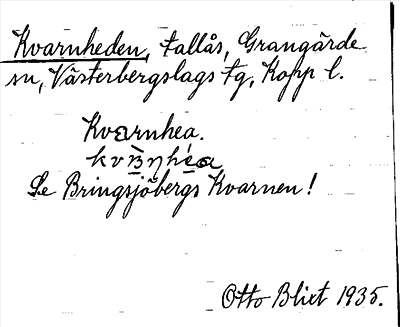 Kvarnheden, tallås, Grangärde
sn, Västerbergslags tg, Kopp l.
Kvarnhea.
Se Bringsjöbergs Kvarnen!
Otto Blixt 1935.